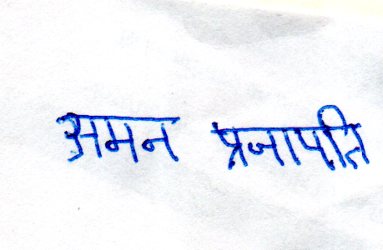 अमन प्रजापति